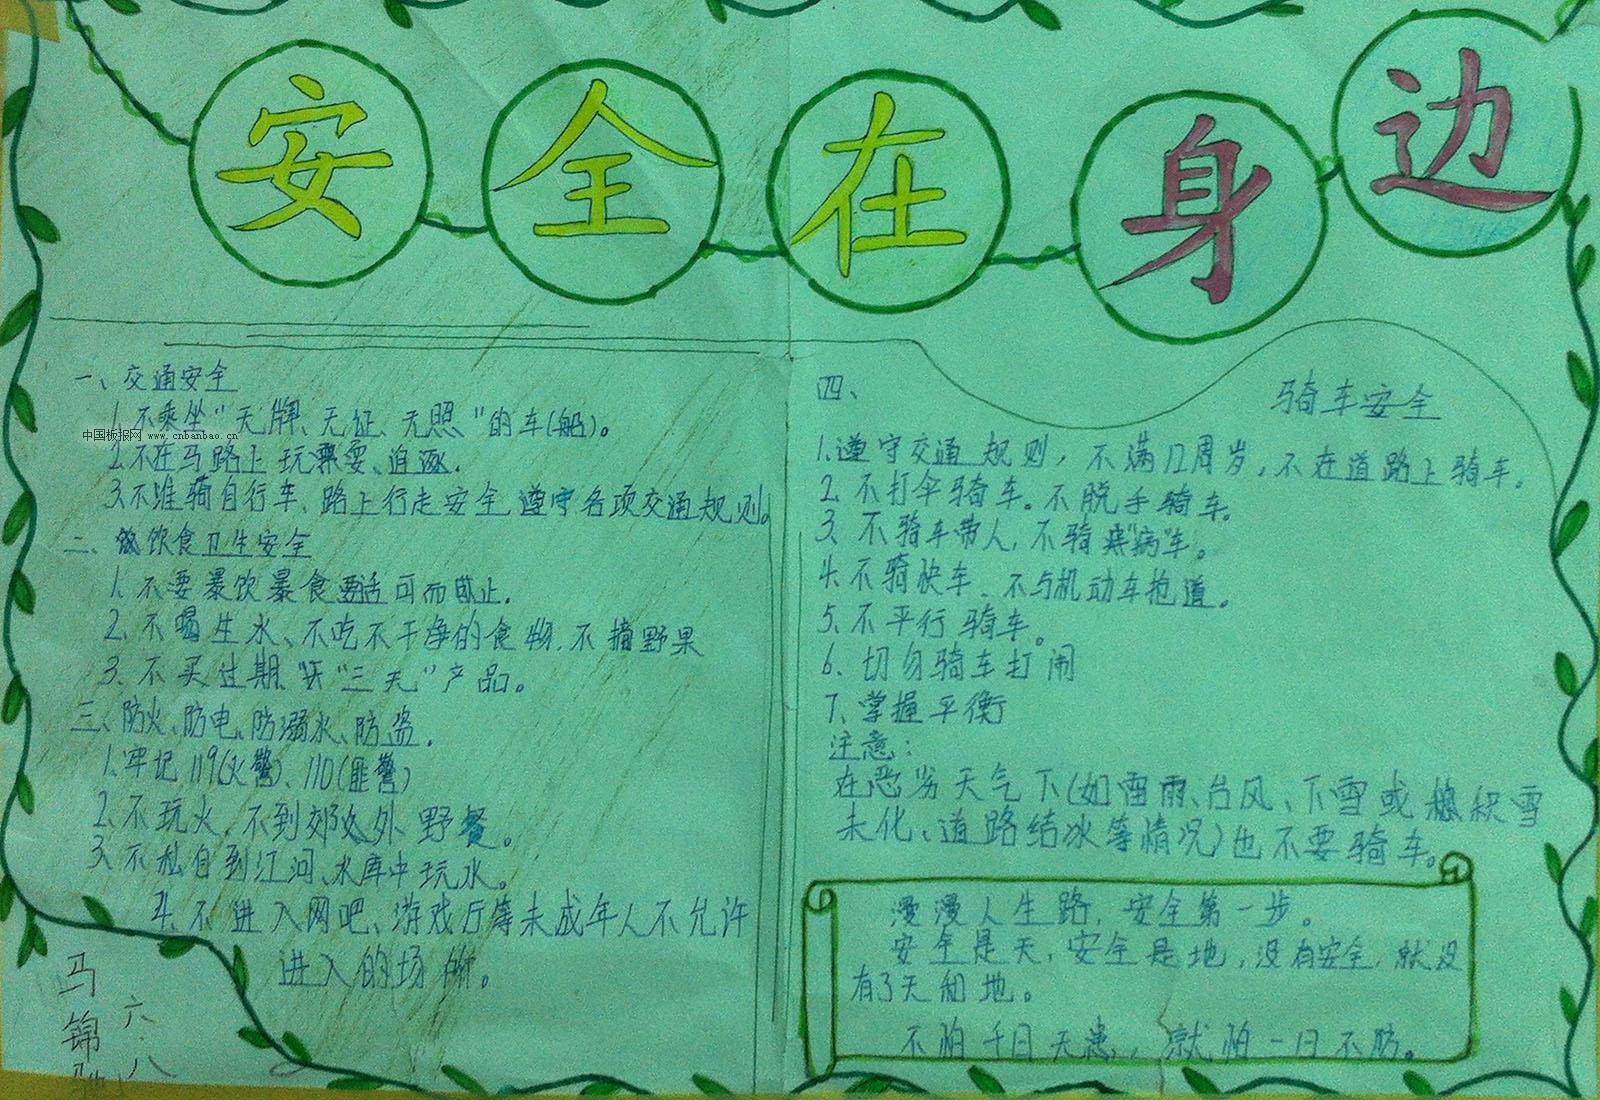 安全在身边
一、交通安全
1.不乘坐"无牌、无证、无照"的车(船)。
中国板报网 www.cnbanbao.cn
2.不在马路上玩耍、追逐.
3.不准骑自行车、路上行走安全 遵守各项交通规则。
二、饮食卫生安全
1.不要暴饮暴食要适可而止.
2.不喝生水、不吃不干净的食物.不摘野果
3.不买过期"三无"产品。
三、防火、防电、防溺水、防盗.
1.牢记119(火警)、110(匪警)
2.不玩火,不到郊外野餐。
3.不私自到江河、水库中玩水。
4.不进入网吧、游戏厅等未成年人不允许
进入的场所。
马锦
六·八
四、骑车安全
1.遵守交通规则,不满12周岁,不在道路上骑车。
2.不打伞骑车。不脱手骑车.
3.不骑车带人,不骑"病"车。
4.不骑快车、不与机动车抢道。
5.不平行骑车。
6.切勿骑车打闹
7.掌握平衡
注意:
在恶劣天气下(如雷雨、台风、下雪或积雪
未化、道路结冰等情况)也不要骑车。
漫漫人生路,安全第一步。
安全是天,安全是地,没有安全,就没
有了天和地。
不怕千日无患,就怕一日不防。